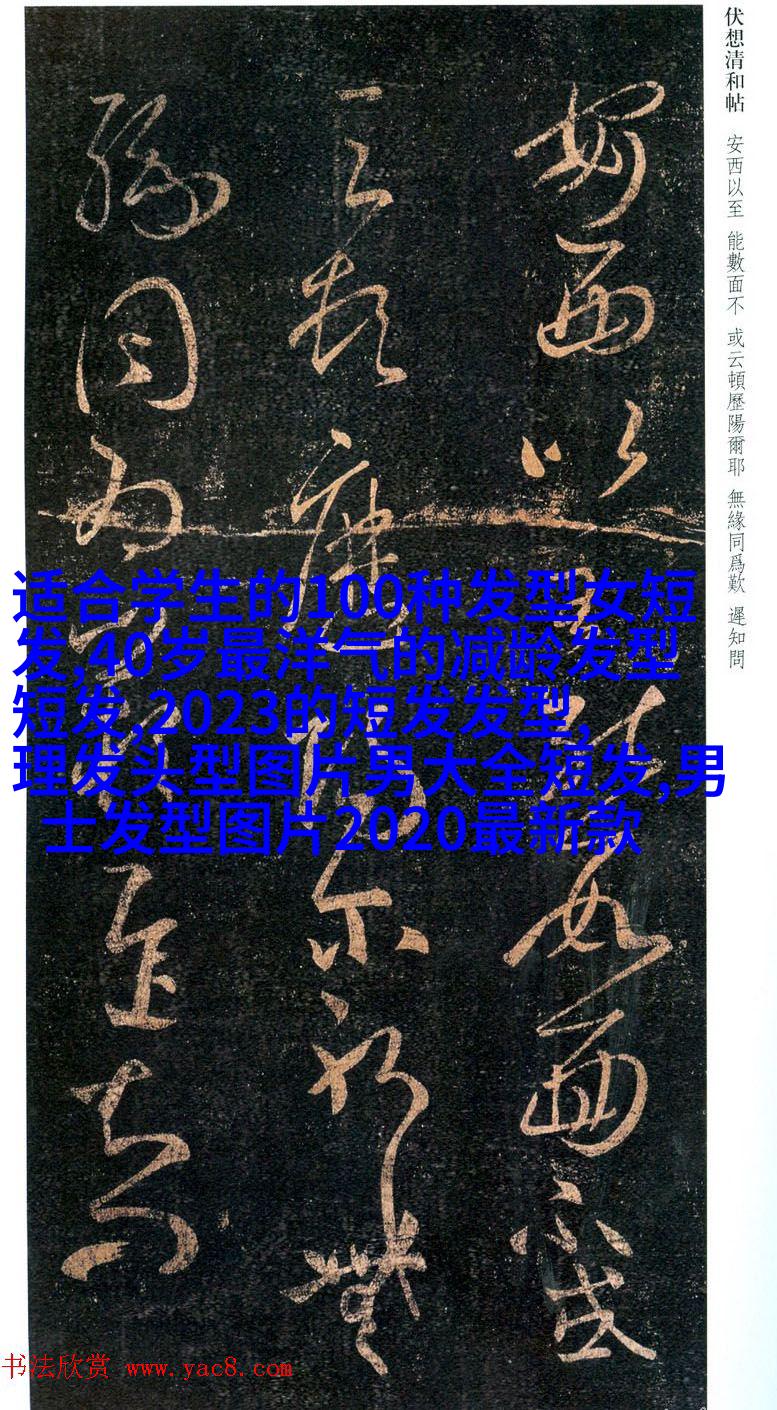 伏想清和帖 安西以至 能數面不 或云頓歷陽爾耶 無緣同爲歎 遲知問
安西以至能數面不或
云頓歷陽爾耶無
緣同爲歎遲知問
适合学生的100种发型女短
发,40岁最洋气的减龄发型
短发,2023的短发发型,
理发头型图片男大全短发,男
士发型图片2020最新款
书法欣赏 www.yac8.com